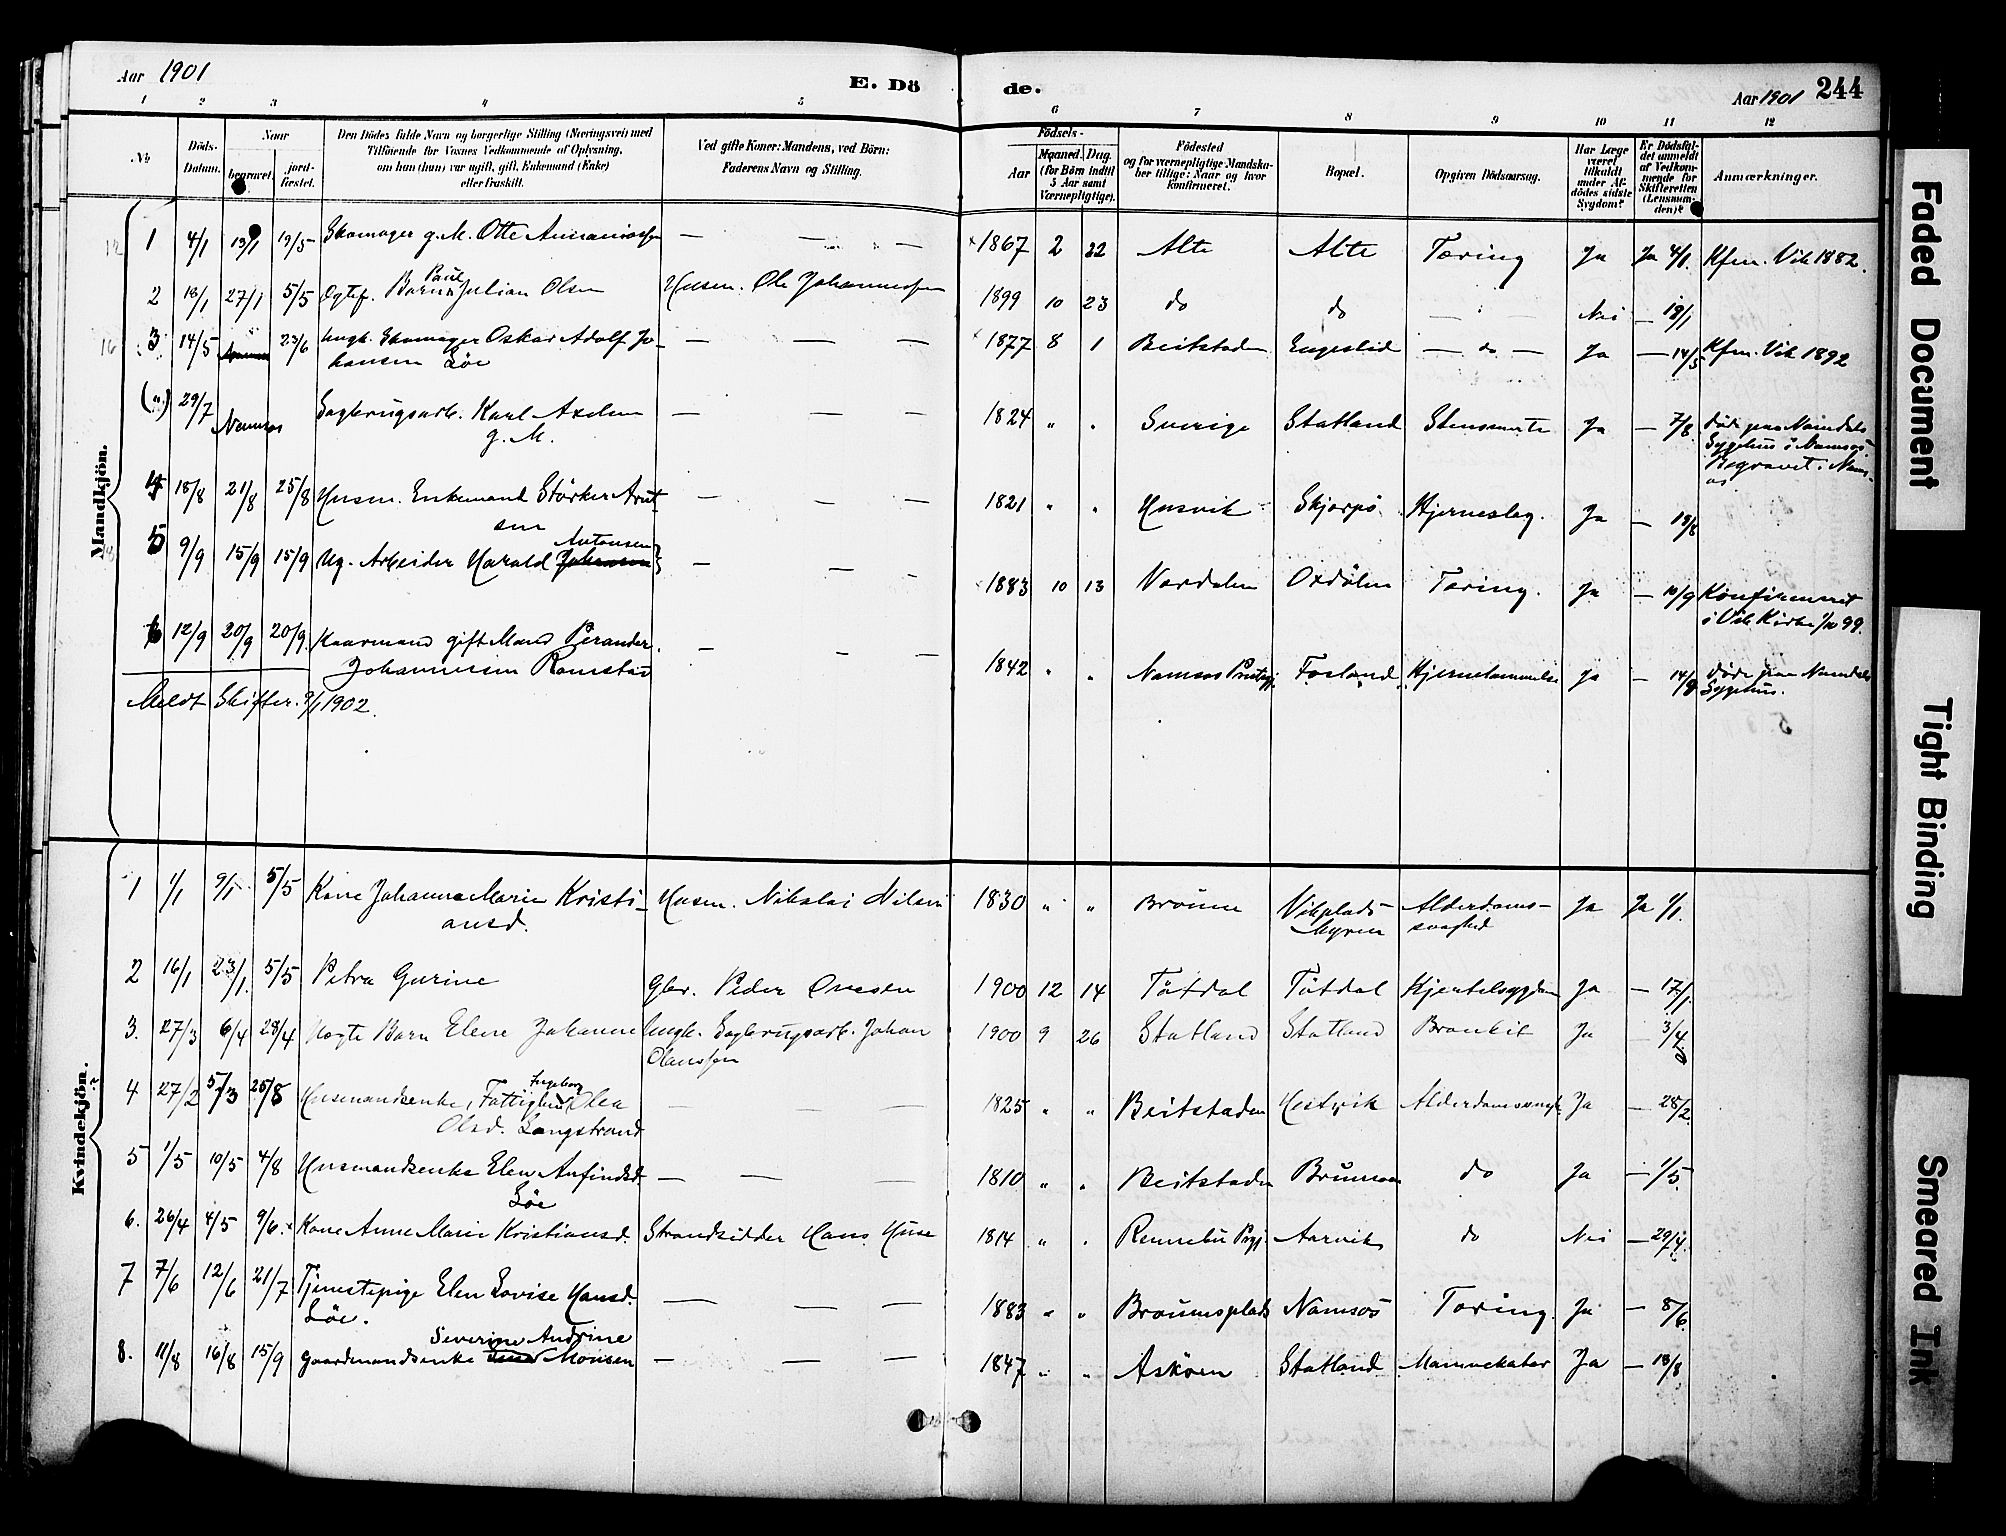 Aar 1901
E. Dö
de.
Aar 1901 244
1 2 3 4 5 6 7 8 9 10 11 12
No
Döds-
Datum.
Naar
begravet.
jord-
fæstet.
Den Dödes fulde Navn og borgerlige Stilling (Næringsvei) med
Tilföiende for Voxnes Vedkommende af Oplysning,
om han (hun) var ugift, gift, Enkemand (Enke)
eller fraskilt.
Ved gifte Koner: Mandens, ved Börn:
Faderens Navn og Stilling.
Födsels-
Aar
Maaned. Dag.
(for Börn indtil
5 Aar samt
Værnepligtige).
Födested
og for værnepligtige Mandska-
ber tillige: Naar og hvor
konfirmeret.
Bopæl.
Opgiven Dödsaarsag.
Har Læge
været
tilkaldt
under Af-
dödes sidste
Sygdom?
Er Dödsfal-
det anmeldt
af Vedkom-
mende for
Skifteretten
(Lensman-
den)?
Anmærkninger.
Mandkjön.
1 4/1 13/1 19/5 Skomager g. M. Otte — — — 1867 2 22 Alte Alte Tæring Ja Ja 4/1. Kfm. Vik 1882.
2 18/1 27/1 5/5 Ogtef. Barn Paul Julian Olsen Husm. Ole Johannessen 1899 10 23 do do — Nei — 19/1
3 14/5 23/6 Ungk. Skomager Oskar Adolf Jo-
hansen Löe — — — 1877 8 1 Beitstaden Engeslid — do — Ja — 14/5 Kfm. Vik 1892
(") 29/7 Namsos Sagbrugsarb. Karl Axelsen
g. M. — — — 1824 " " Sverige Statland Ja — 7/8 Döde paa Namdals
Sygehus i Namsos.
Begravet i Nams-
os
4 18/8 21/8 25/8 Husm. Enkemand Störker Arnt-
sen — — — 1821 " " Husvik Hjerneslag. Ja — 19/8
5 9/9 15/9 15/9 Ug. Arbeider Harald Antonsen — — — 1883 10 13 Værdalen Oxdölen Tæring. Ja — 10/9 Konfirmeret
i Vik Kirke 1/10 99.
6 12/9 20/9 20/9. Kaarmand gift Mand Perander
Johannesen Ramstad — — — 1842 " " Namsos Fosland Ja — 14/9 Döde paa Namdals
Sygehus.
Meldt Skifter. 9/1 1902.
Kvindekjön.
1 1/1 9/1 5/5 Kone Johanna Marie Kristi-
ansd. Husm. Nikolai Nilsen 1830 " " Bröum Vikplads-
Myren Alderdoms-
svaghed Ja Ja 1/1.
2 16/1 23/1. 5/5 Petra Gurine Gbr. Peder Ovesen 1900 12 14 Tötdal Tötdal Hjertesygdom Ja — 17/1
3. 27/3 6/4 28/4 Uægte Barn Elene Johanne Ungk. Sagbrugsarb. Johan
Olaussen 1900 9 26 Statland Statland Bronkit Ja — 3/4
4 27/2 5/3 25/8 Husmandsenke, Fattiglem Ingeborg Olea
Olsd. Langstrand — — — 1825 " " Beitstaden Hestvik Alderdomssvagh. Ja — 28/2
5 1/5 10/5 4/8 Husmandsenke Elen Anfindsd.
Löe — — — 1810 " " Beitstaden do Ja — 1/5.
6. 26/4 4/5 9/6. Kone Anne Marie Kristiansd. Strandsidder Hans Huse 1814 " " Rennebu Prgj. Aarvik do Nei — 29/4.
7 7/6 12/6 21/7 Tjenestepige Elen Lovise Hansd.
Löe. — — — 1883 " " Bröumsplads Namsos Tæring. Ja — 8/6
8. 11/8 16/8 15/9 Gaardmandsenke Severine Andrine Monsen — — — 1847 " " Statland Ja — 13/8
Faded Document
Tight Binding
Smeared Ink